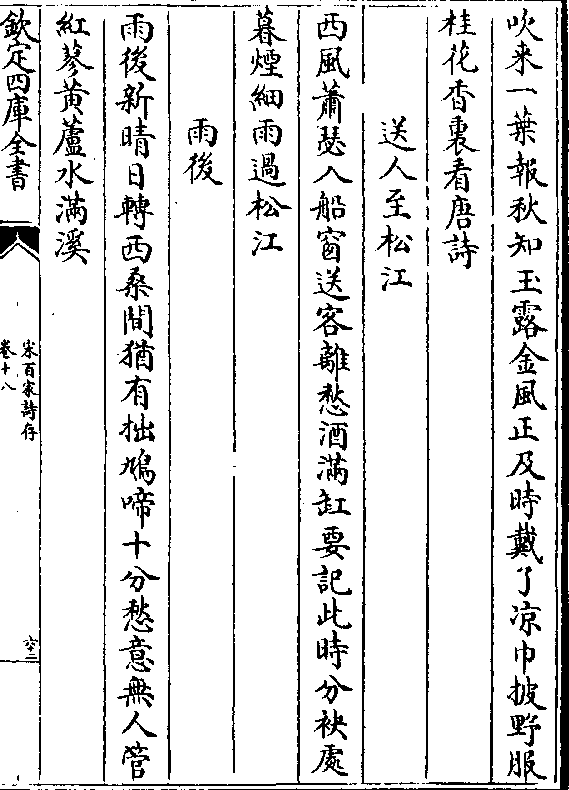 吹来一葉報秋知玉露金風正及時戴了凉巾披野服
桂花香裏看唐詩
送人至松江
西風蕭瑟入船窗送客離愁酒滿缸要記此時分袂處
暮煙細雨過松江
雨後
雨後新晴日轉西桑間猶有拙鳩啼十分愁意無人管
紅蓼黄蘆水滿溪
欽定四庫全書
宋百家詩存
卷十八
六十二